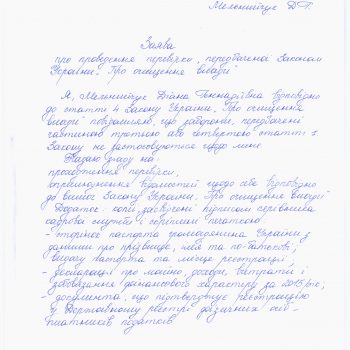 Мельнійчук Д.Г.
Заява
про проведення перевірки, передбаченої Законом
України „Про очищення влади"
Я, Мельнійчук Діана Геннадіївна відповідно
до статті 4 Закону України „Про очищення
влади" повідомляю, що заборони, передбачені
частиною третьою або четвертою статті 1
Закону не застосовуються щодо мене
Надаю згоду на:
проходження перевірки;
оприлюднення відомостей щодо себе відповідно
до вимог Закону України „Про очищення влади"
Додаток: копії засвідчені підписом керівника
кадрової служби і скріплені печаткою
- сторінок паспорта громадянина України з
даними про прізвище, ім'я та по-батькові,
видачу паспорта та місце реєстрації;
- декларації про майно, доходи, витрати і
зобов'язання фінансового характеру за 2015 рік;
- документа, що підтверджує реєстрацію
у Державному реєстрі фізичних осіб -
платників податків